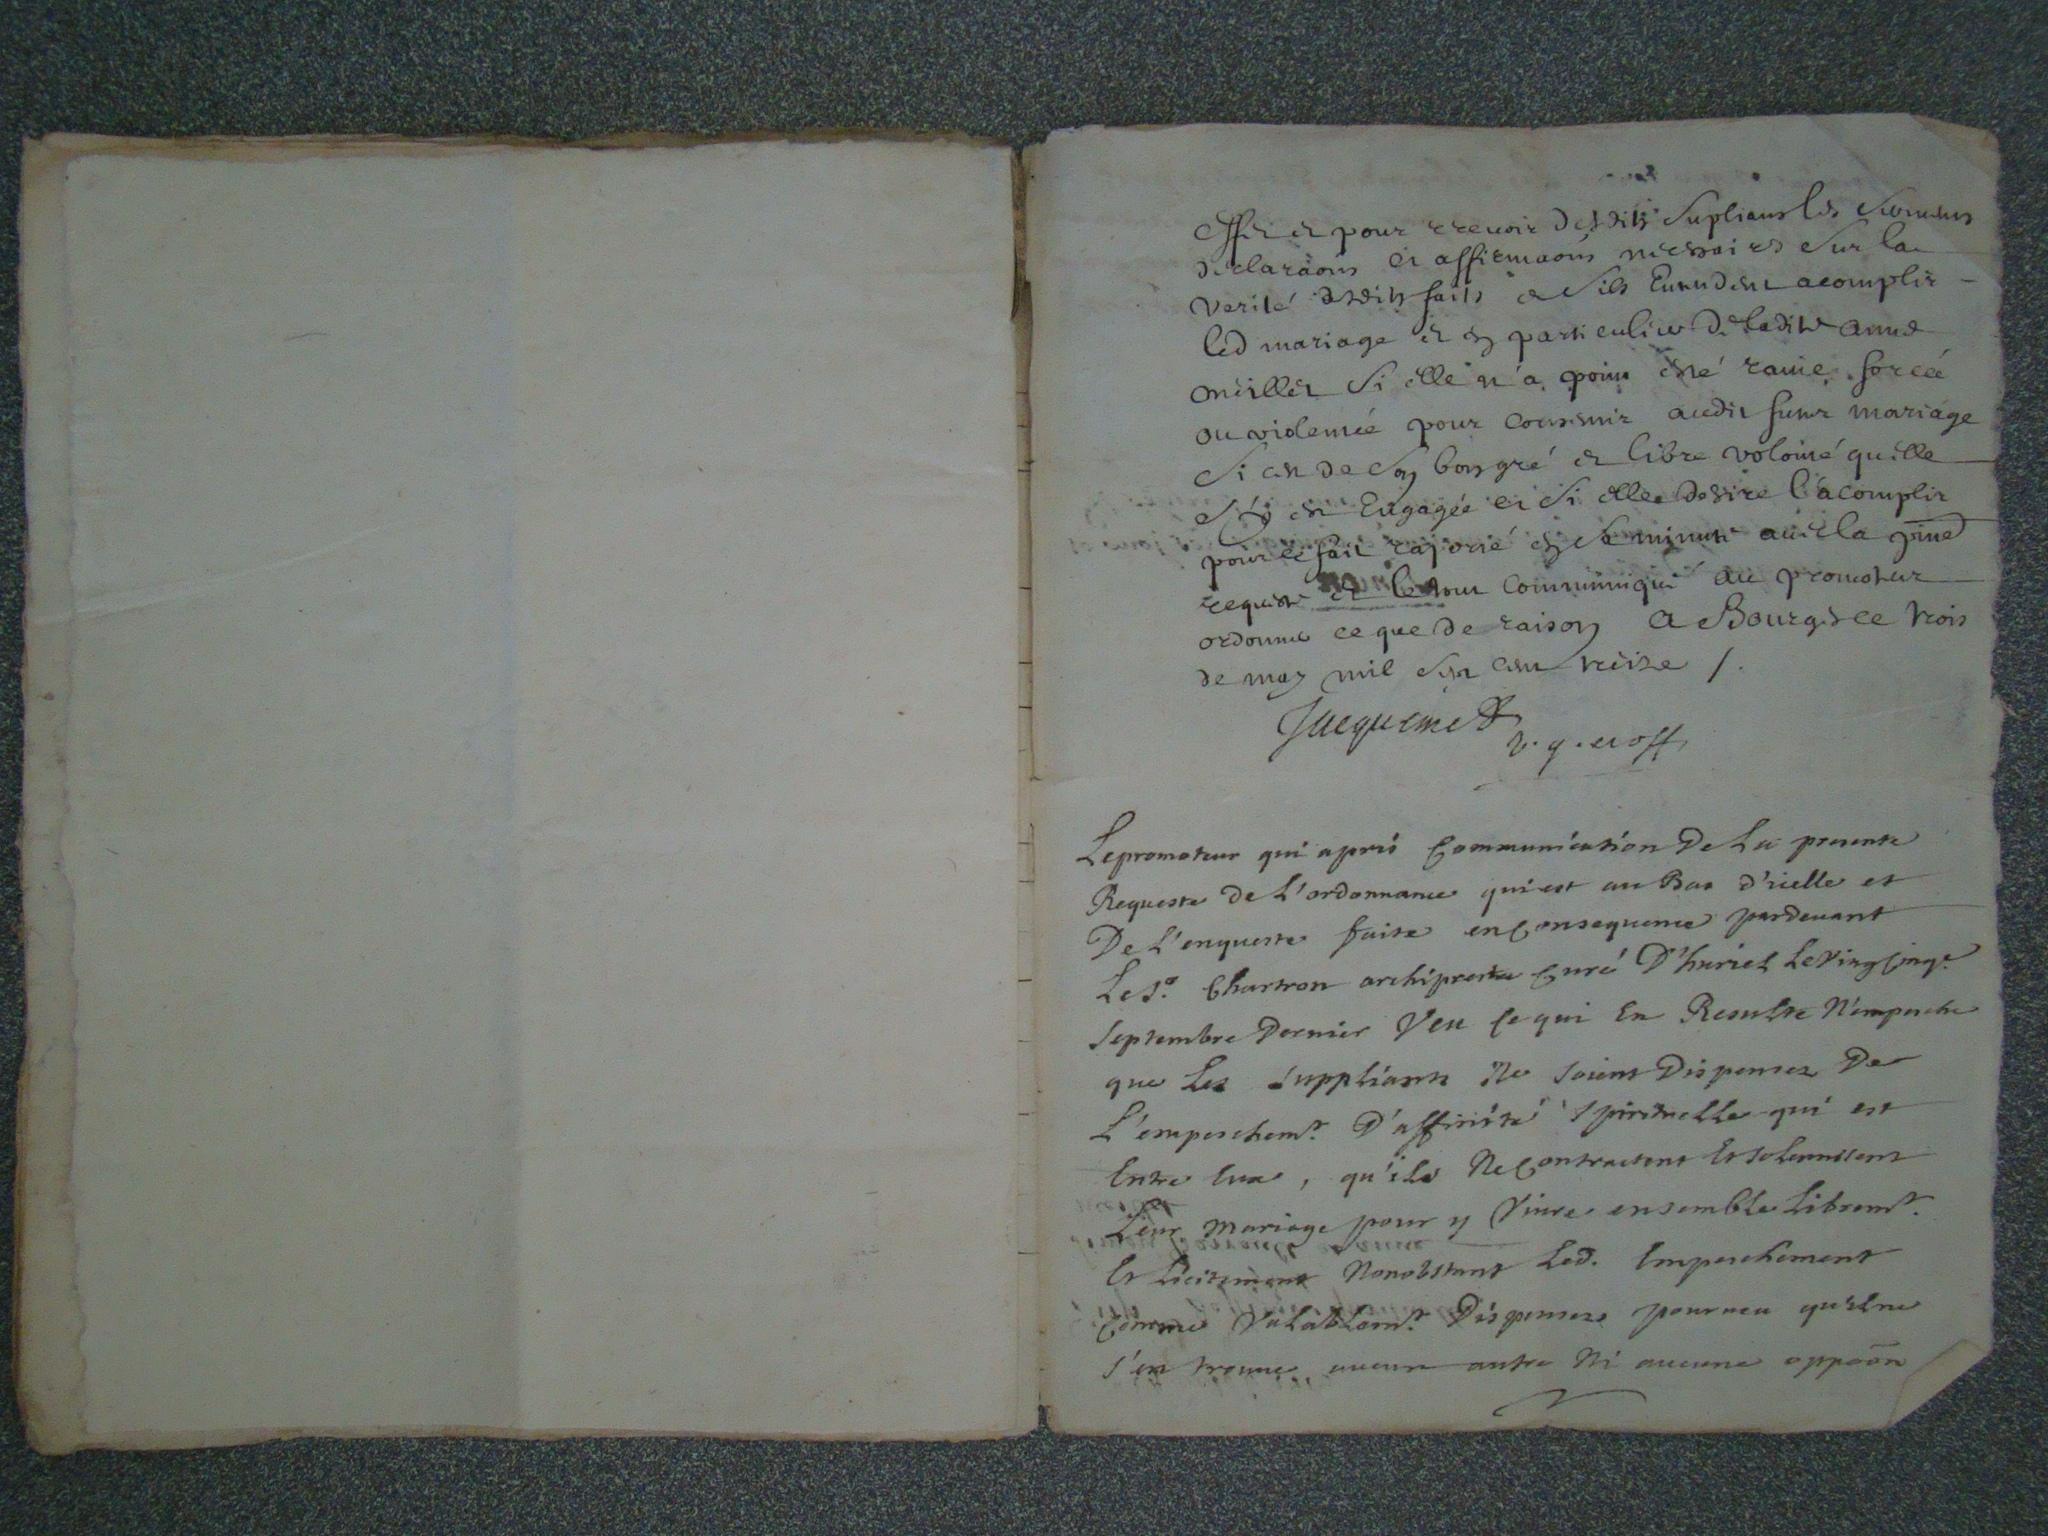 effet et pour recevoir desdits supliants les sermens
declaraons et affirmaons necessaires sur la
verité desdits faits et sils entendent acomplir
led mariage et en particulier de ladite anne
meillet si elle n'a point esté ravie forcée
ou violentée pour consentir audit futur mariage
si cest de son bon gré et libre volonté quelle
s'y est engagée et si elle desire l'acomplir
pour ce fait raporté en se minute avec la pnte
requeste et le tout communiqué au promoteur
ordonner ce que de raison a Bourges ce trois
de may mil sept cent treize /.
Jacquemet
v. g. et off
Lepromoteur qui apres Communication De La presente
Requeste De L'ordonnance qui est au Bas d'icelle et
De L'enqueste faite en Consequence pardevant
Le Sr. Chartron archiprestre Curé D'huriel Le Vingcinqe
septembre Dernier Veu Ce qui En Resulte N'empesche
que Les suppliants Ne soient Dispensez De
L'empeschemt. D'affinité spirituelle qui est
Entre Eux, qu'ils Ne Contractent Et solennisent
Leur Mariage pour y Vivre ensemble Libremt.
Et Licitement Nonobstant Led. Empeschement
Comme Valablemt. Dispensez pourveu qu'il ne
s'en trouve aucun autre Ni aucune oppoõn